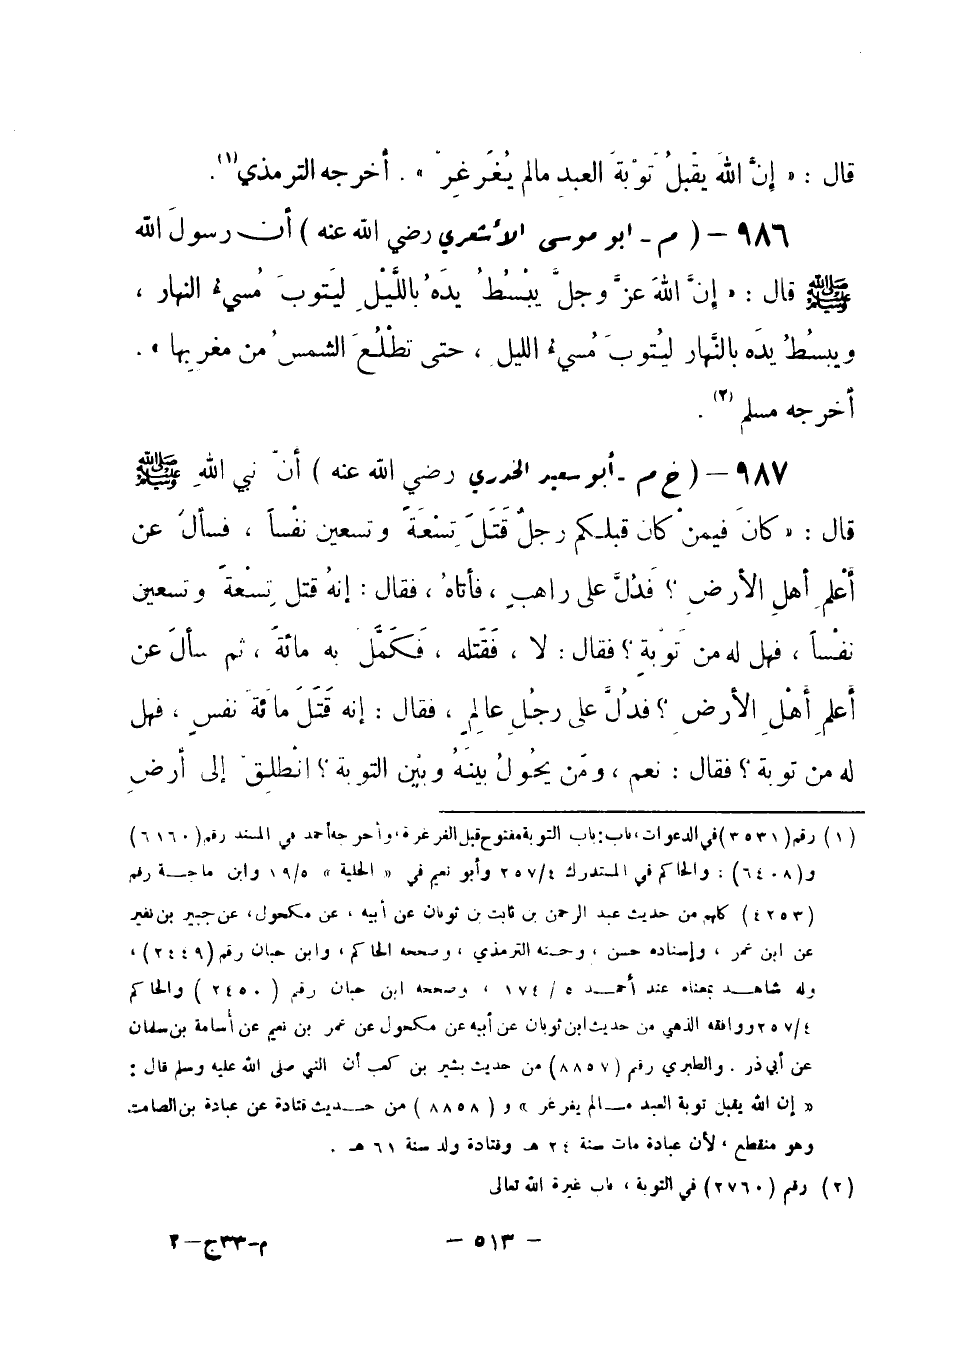 قال : « إنَّ اللهَ يقْبَلُ تَوْبَةَ العبدِ مالم يُغَرْغِرْ » . أخرجه الترمذي(١).
٩٨٦ – ( م - ابو موسى الأشعري رضي الله عنه ) أن رسولَ الله
ﷺ قال : « إنَّ اللهَ عزَّ وجلَّ يبْسُطُ يدَهُ باللَّيْلِ ليَتوبَ مُسيءُ النهار ،
ويبسُطُ يدَه بالنَّهار ليَتُوبَ مُسيءُ الليل ، حتى تطْلُعَ الشمسُ من مغربها » .
أخرجه مسلم (٢) .
٩٨٧ – ( خ م - أبو سعيد الخدري رضي الله عنه ) أنَّ نبي اللهِ ﷺ
قال : « كانَ فيمنْ كان قبلكم رجلٌ قَتَلَ تِسْعَةً وتسعين نفْساً ، فسألَ عن
أَعْلمِ أهلِ الأرضِ ؟ فَدُلَّ على راهبٍ ، فأتاهُ ، فقال : إنهُ قتل تِسْعةً وتسعين
نفْساً ، فهل له من تَوْبةٍ ؟ فقال : لا ، فَقَتله ، فَكَمَّلَ به مائةً ، ثم سألَ عن
أعلمِ أهْلِ الأرضِ ؟ فدُلَّ على رجُلٍ عالِمٍ ، فقال : إنه قَتَلَ مائةَ نفسٍ ، فهل
له من توبة ؟ فقال : نعم ، ومَن يحُولُ بينهُ وبيْن التوبة ؟ انْطلِقْ إلى أرضِ
(١) رقم (٣٥٣١) في الدعوات ، باب : باب التوبة مفتوح قبل الغرغرة ، وأخرجه أحمد في المسند رقم (٦١٦٠)
و(٦٤٠٨) : والحاكم في المستدرك ٢٥٧/٤ وأبو نعيم في « الحلية » ١٩/٥ وابن ماجة رقم
(٤٢٥٣) كلهم من حديث عبد الرحمن بن ثابت بن ثوبان عن أبيه ، عن مكحول، عن جبير بن نفير
عن ابن عمر ، وإسناده حسن ، وحسنه الترمذي ، وصححه الحاكم ، وابن حبان رقم (٢٤٤٩) ،
وله شاهد بمعناه عند أحمد ١٧٤/٥ ، وصححه ابن حبان رقم (٢٤٥٠) والحاكم
٢٥٧/٤ ووافقه الذهبي من حديث ابن ثوبان عن أبيه عن مكحول عن عمر بن نعيم عن أسامة بن سلمان
عن أبي ذر . والطبري رقم (٨٨٥٧) من حديث بشير بن كعب أن النبي صلى الله عليه وسلم قال :
« إن الله يقبل توبة العبد مالم يغرغر » و (٨٨٥٨) من حديث قتادة عن عبادة بن الصامت
وهو منقطع ، لأن عبادة مات سنة ٣٤ هـ وقتادة ولد سنة ٦١ هـ .
(٢) رقم (٢٧٦٠) في التوبة ، باب غيرة الله تعالى
– ٥١٣ – م-٣٣ج-٢